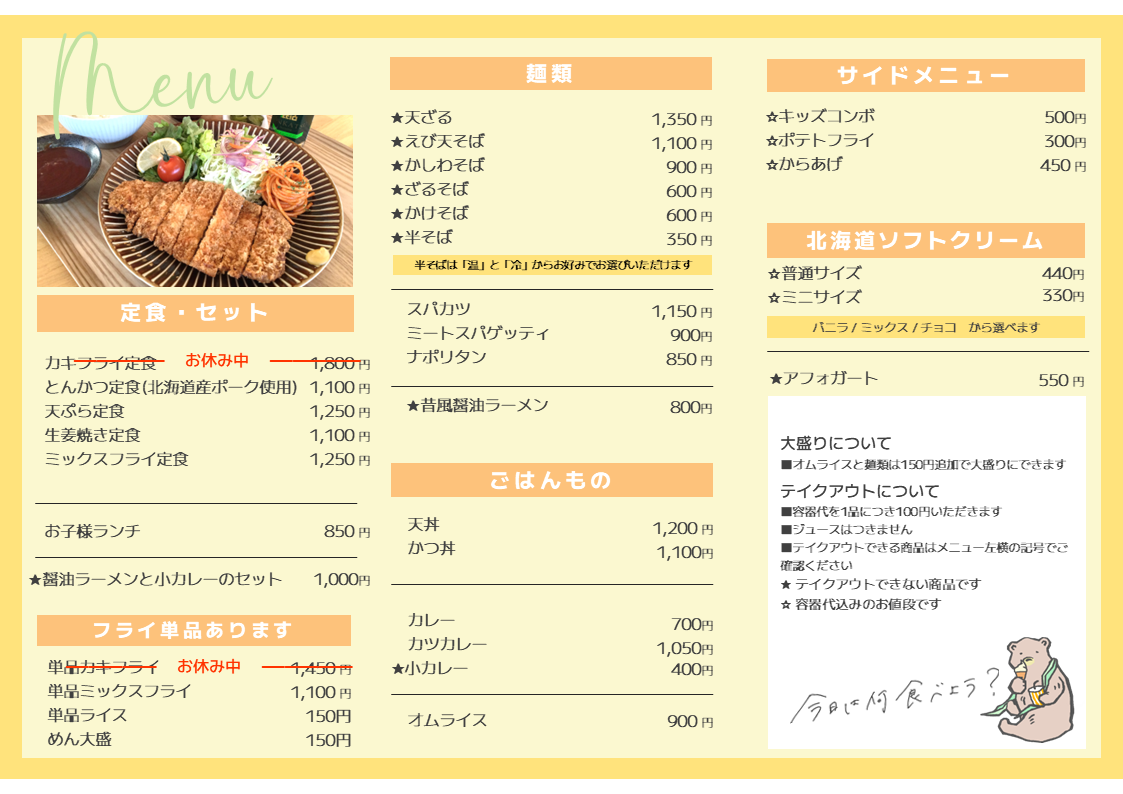 Menu
定食・セット
カキフライ定食 お休み中 1,800円
とんかつ定食(北海道産ポーク使用) 1,100円
天ぷら定食 1,250円
生姜焼き定食 1,100円
ミックスフライ定食 1,250円
お子様ランチ 850円
★醤油ラーメンと小カレーのセット 1,000円
フライ単品あります
単品カキフライ お休み中 1,450円
単品ミックスフライ 1,100円
単品ライス 150円
めん大盛 150円
麺類
★天ざる 1,350円
★えび天そば 1,100円
★かしわそば 900円
★ざるそば 600円
★かけそば 600円
★半そば 350円
半そばは「温」と「冷」からお好みでお選びいただけます
スパカツ 1,150円
ミートスパゲッティ 900円
ナポリタン 850円
★昔風醤油ラーメン 800円
ごはんもの
天丼 1,200円
かつ丼 1,100円
カレー 700円
カツカレー 1,050円
★小カレー 400円
オムライス 900円
サイドメニュー
☆キッズコンボ 500円
☆ポテトフライ 300円
☆からあげ 450円
北海道ソフトクリーム
☆普通サイズ 440円
☆ミニサイズ 330円
バニラ / ミックス / チョコ から選べます
★アフォガート 550円
大盛りについて
■オムライスと麺類は150円追加で大盛りにできます
テイクアウトについて
■容器代を1品につき100円いただきます
■ジュースはつきません
■テイクアウトできる商品はメニュー左横の記号でご
確認ください
★ テイクアウトできない商品です
☆ 容器代込みのお値段です
今日は何食べよう?